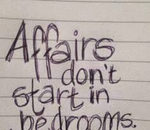 Affairs
don't
start in
bedrooms.